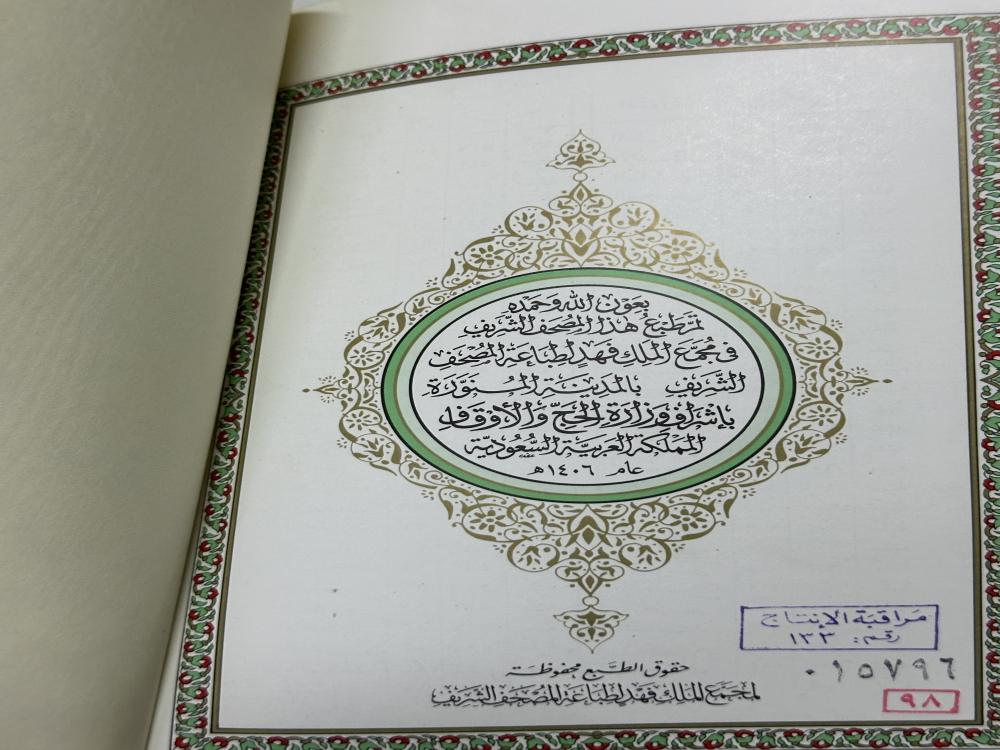 بعون الله وحمده
تم طبع هذا المصحف الشريف
في مجمع الملك فهد لطباعة المصحف
الشريف بالمدينة المنورة
بإشراف وزارة الحج والأوقاف
المملكة العربية السعودية
عام ١٤٠٦ه
مراقبة الإنتاج
رقم: ١٣٣
٠١٥٧٩٦
٩٨
حقوق الطبع محفوظة
لمجمع الملك فهد لطباعة المصحف الشريف